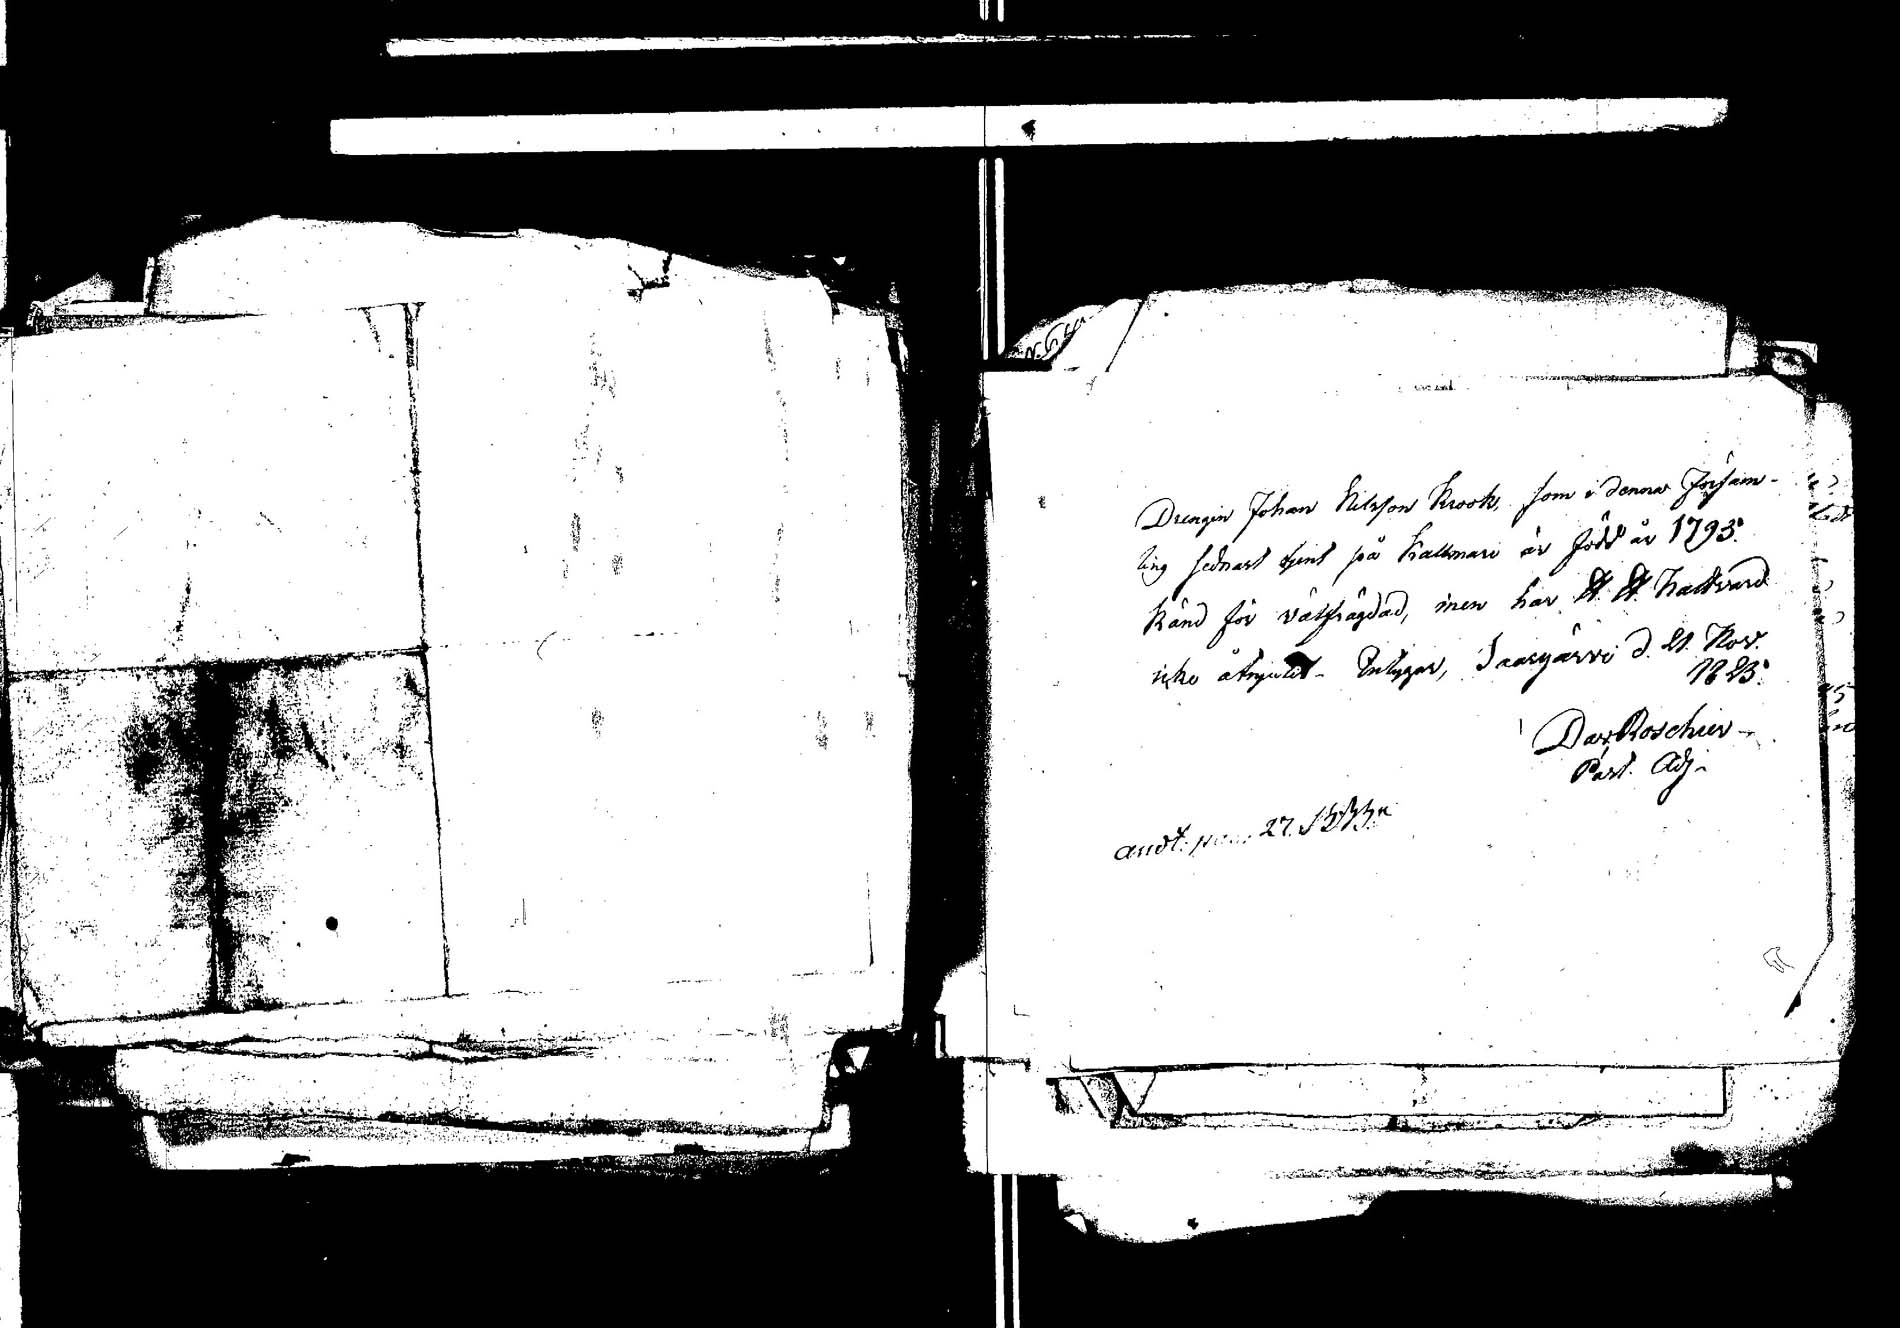 Drengen Johan Nilsson Krook, som i denna Försam-
ling sednast tjent på Kallmari är född år 1793.
Känd för välfrägdad, men har H. H. Nattvard
icke åtnjutit - Intygar, Saarijärvi d. 21. Nov.
1823.
Dav Roschier
Past. Adj.
27.